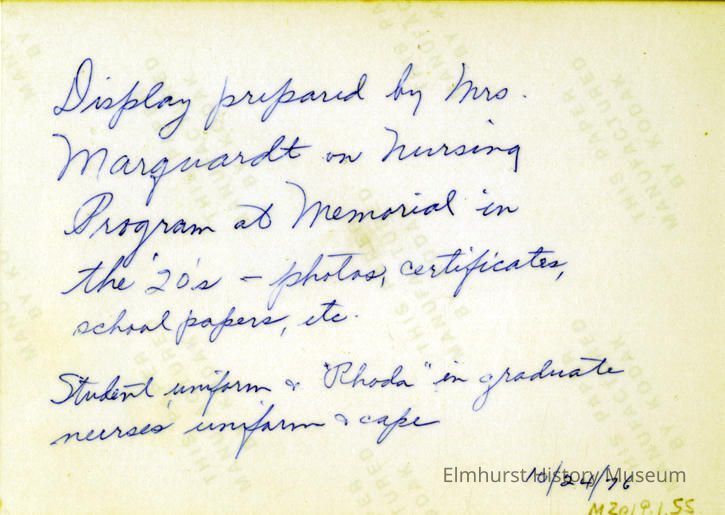 Display prepared by Mrs.
Marquardt on Nursing
Program at Memorial in
the '20's – photos, certificates,
school papers, etc.
Student uniform & "Rhoda" in graduate
nurses uniform & cape
10/24/76
Elmhurst History Museum
M2019.1.55
THIS PAPER
MANUFACTURED
BY KODAK